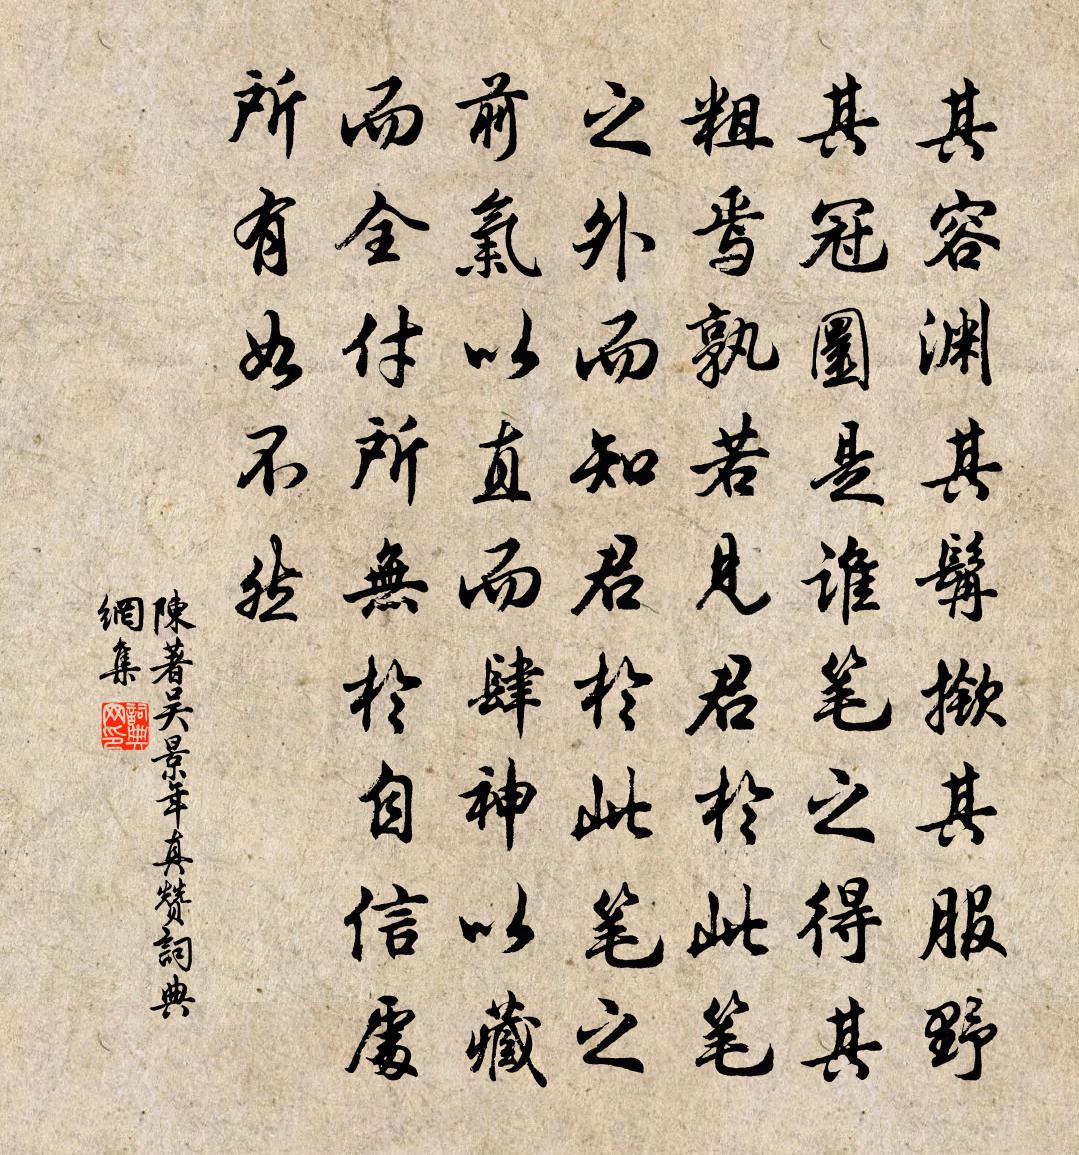 其容渊其髯撳其服野
其冠圜是谁笔之得其
粗焉孰若見君於此笔
之外而知君於此笔之
前氣以直而肆神以藏
而全付所無於自信處
所有如不然
陳著吴景年真赞詞典
網集
詞典
网印